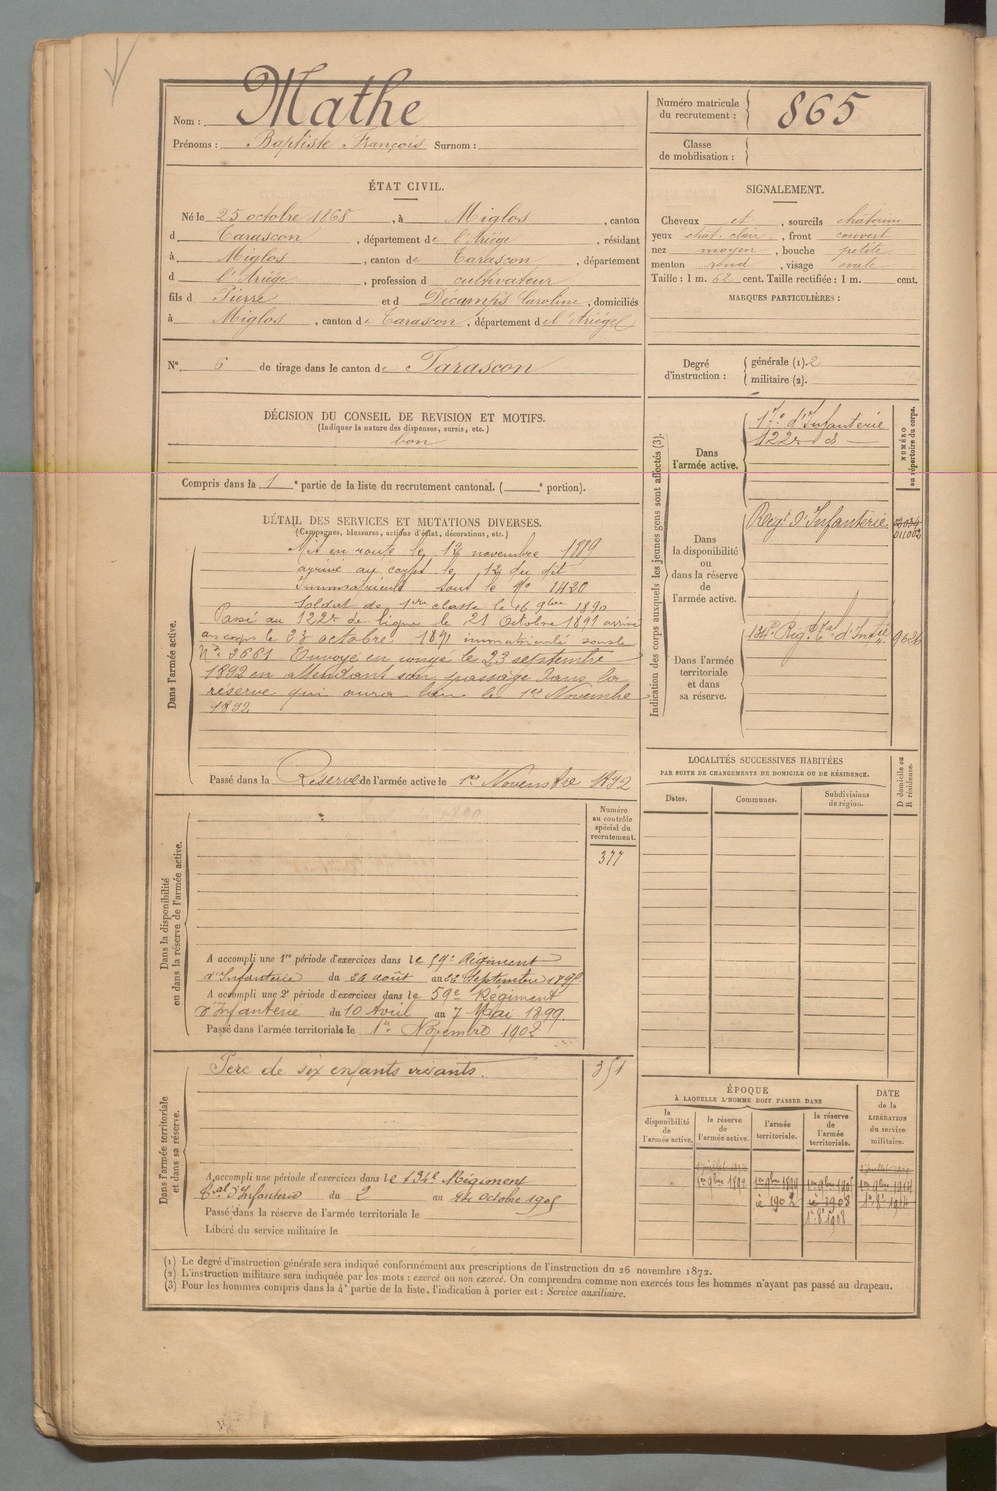 Nom : Mathe
Prénoms : Baptiste François Surnom :
Numéro matricule
du recrutement : 865
Classe
de mobilisation :
ÉTAT CIVIL.
Né le 25 octobre 1868, à Miglos, canton
d Tarascon, département de l'Ariège, résidant
à Miglos, canton de Tarascon, département
d l'Ariège, profession d cultivateur
fils d Pierre et d Décamps Caroline, domiciliés
à Miglos, canton de Tarascon, département de l'Ariège
N° 6 de tirage dans le canton de Tarascon
SIGNALEMENT.
Cheveux et, sourcils chatains
yeux chat. clair, front couvert
nez moyen, bouche petite
menton rond, visage ovale
Taille : 1 m. 62 cent. Taille rectifiée : 1 m. cent.
MARQUES PARTICULIÈRES :
Degré
d'instruction :
générale (1). 2
militaire (2).
DÉCISION DU CONSEIL DE REVISION ET MOTIFS.
(Indiquer la nature des dispenses, sursis, etc.)
bon
Compris dans la 1e partie de la liste du recrutement cantonal. ( e portion).
DÉTAIL DES SERVICES ET MUTATIONS DIVERSES.
(Campagnes, blessures, actions d'éclat, décorations, etc.)
Dans l'armée active.
Mis en route le 12 novembre 1889
arrivé au corps le 12 du dit
Immatriculé sous le No 1420
Soldat de 1re classe le 16 9bre 1890
Passé au 122e de ligne le 21 Octobre 1891 arrivé
au corps le 23 octobre 1891 immatriculé sous le
No 3681 Envoyé en congé le 23 septembre
1892 en attendant son passage dans la
réserve qui aura lieu le 1er Novembre
1892
Passé dans la Réserve de l'armée active le 1er Novembre 1892
Indication des corps auxquels les jeunes gens sont affectés (3).
NUMÉRO
au répertoire du corps.
Dans
l'armée active.
17e d'Infanterie
122e d
Dans
la disponibilité
ou
dans la réserve
de
l'armée active.
Regt d'Infanterie
Dans l'armée
territoriale
et dans
sa réserve.
134e Rég. tal d'Inftie
LOCALITÉS SUCCESSIVES HABITÉES
PAR SUITE DE CHANGEMENTS DE DOMICILE OU DE RÉSIDENCE.
Dates.
Communes.
Subdivisions
de région.
D domicile ou
R résidence.
Dans la disponibilité
ou dans la réserve de l'armée active.
Numéro
au contrôle
spécial du
recrutement.
377
A accompli une 1re période d'exercices dans le 59e Régiment
d'Infanterie du 26 août au 22 Septembre 1895
A accompli une 2e période d'exercices dans le 59e Régiment
d'Infanterie du 10 Avril au 7 Mai 1899.
Passé dans l'armée territoriale le 1er Novembre 1902
Dans l'armée territoriale
et dans sa réserve.
Père de six enfants vivants.
351
A accompli une période d'exercices dans le 134e Régiment
tal d'Infanterie du 2 au Octobre 1905
Passé dans la réserve de l'armée territoriale le
Libéré du service militaire le
ÉPOQUE
À LAQUELLE L'HOMME DOIT PASSER DANS
la
disponibilité
de
l'armée active.
la réserve
de
l'armée active.
l'armée
territoriale.
la réserve
de
l'armée
territoriale.
DATE
de la
LIBÉRATION
du service
militaire.
1er 9bre 1892
1er 9bre 1899
à 1902
à 1908
(1) Le degré d'instruction générale sera indiqué conformément aux prescriptions de l'instruction du 26 novembre 1872.
(2) L'instruction militaire sera indiquée par les mots : exercé ou non exercé. On comprendra comme non exercés tous les hommes n'ayant pas passé au drapeau.
(3) Pour les hommes compris dans la 4e partie de la liste, l'indication à porter est : Service auxiliaire.